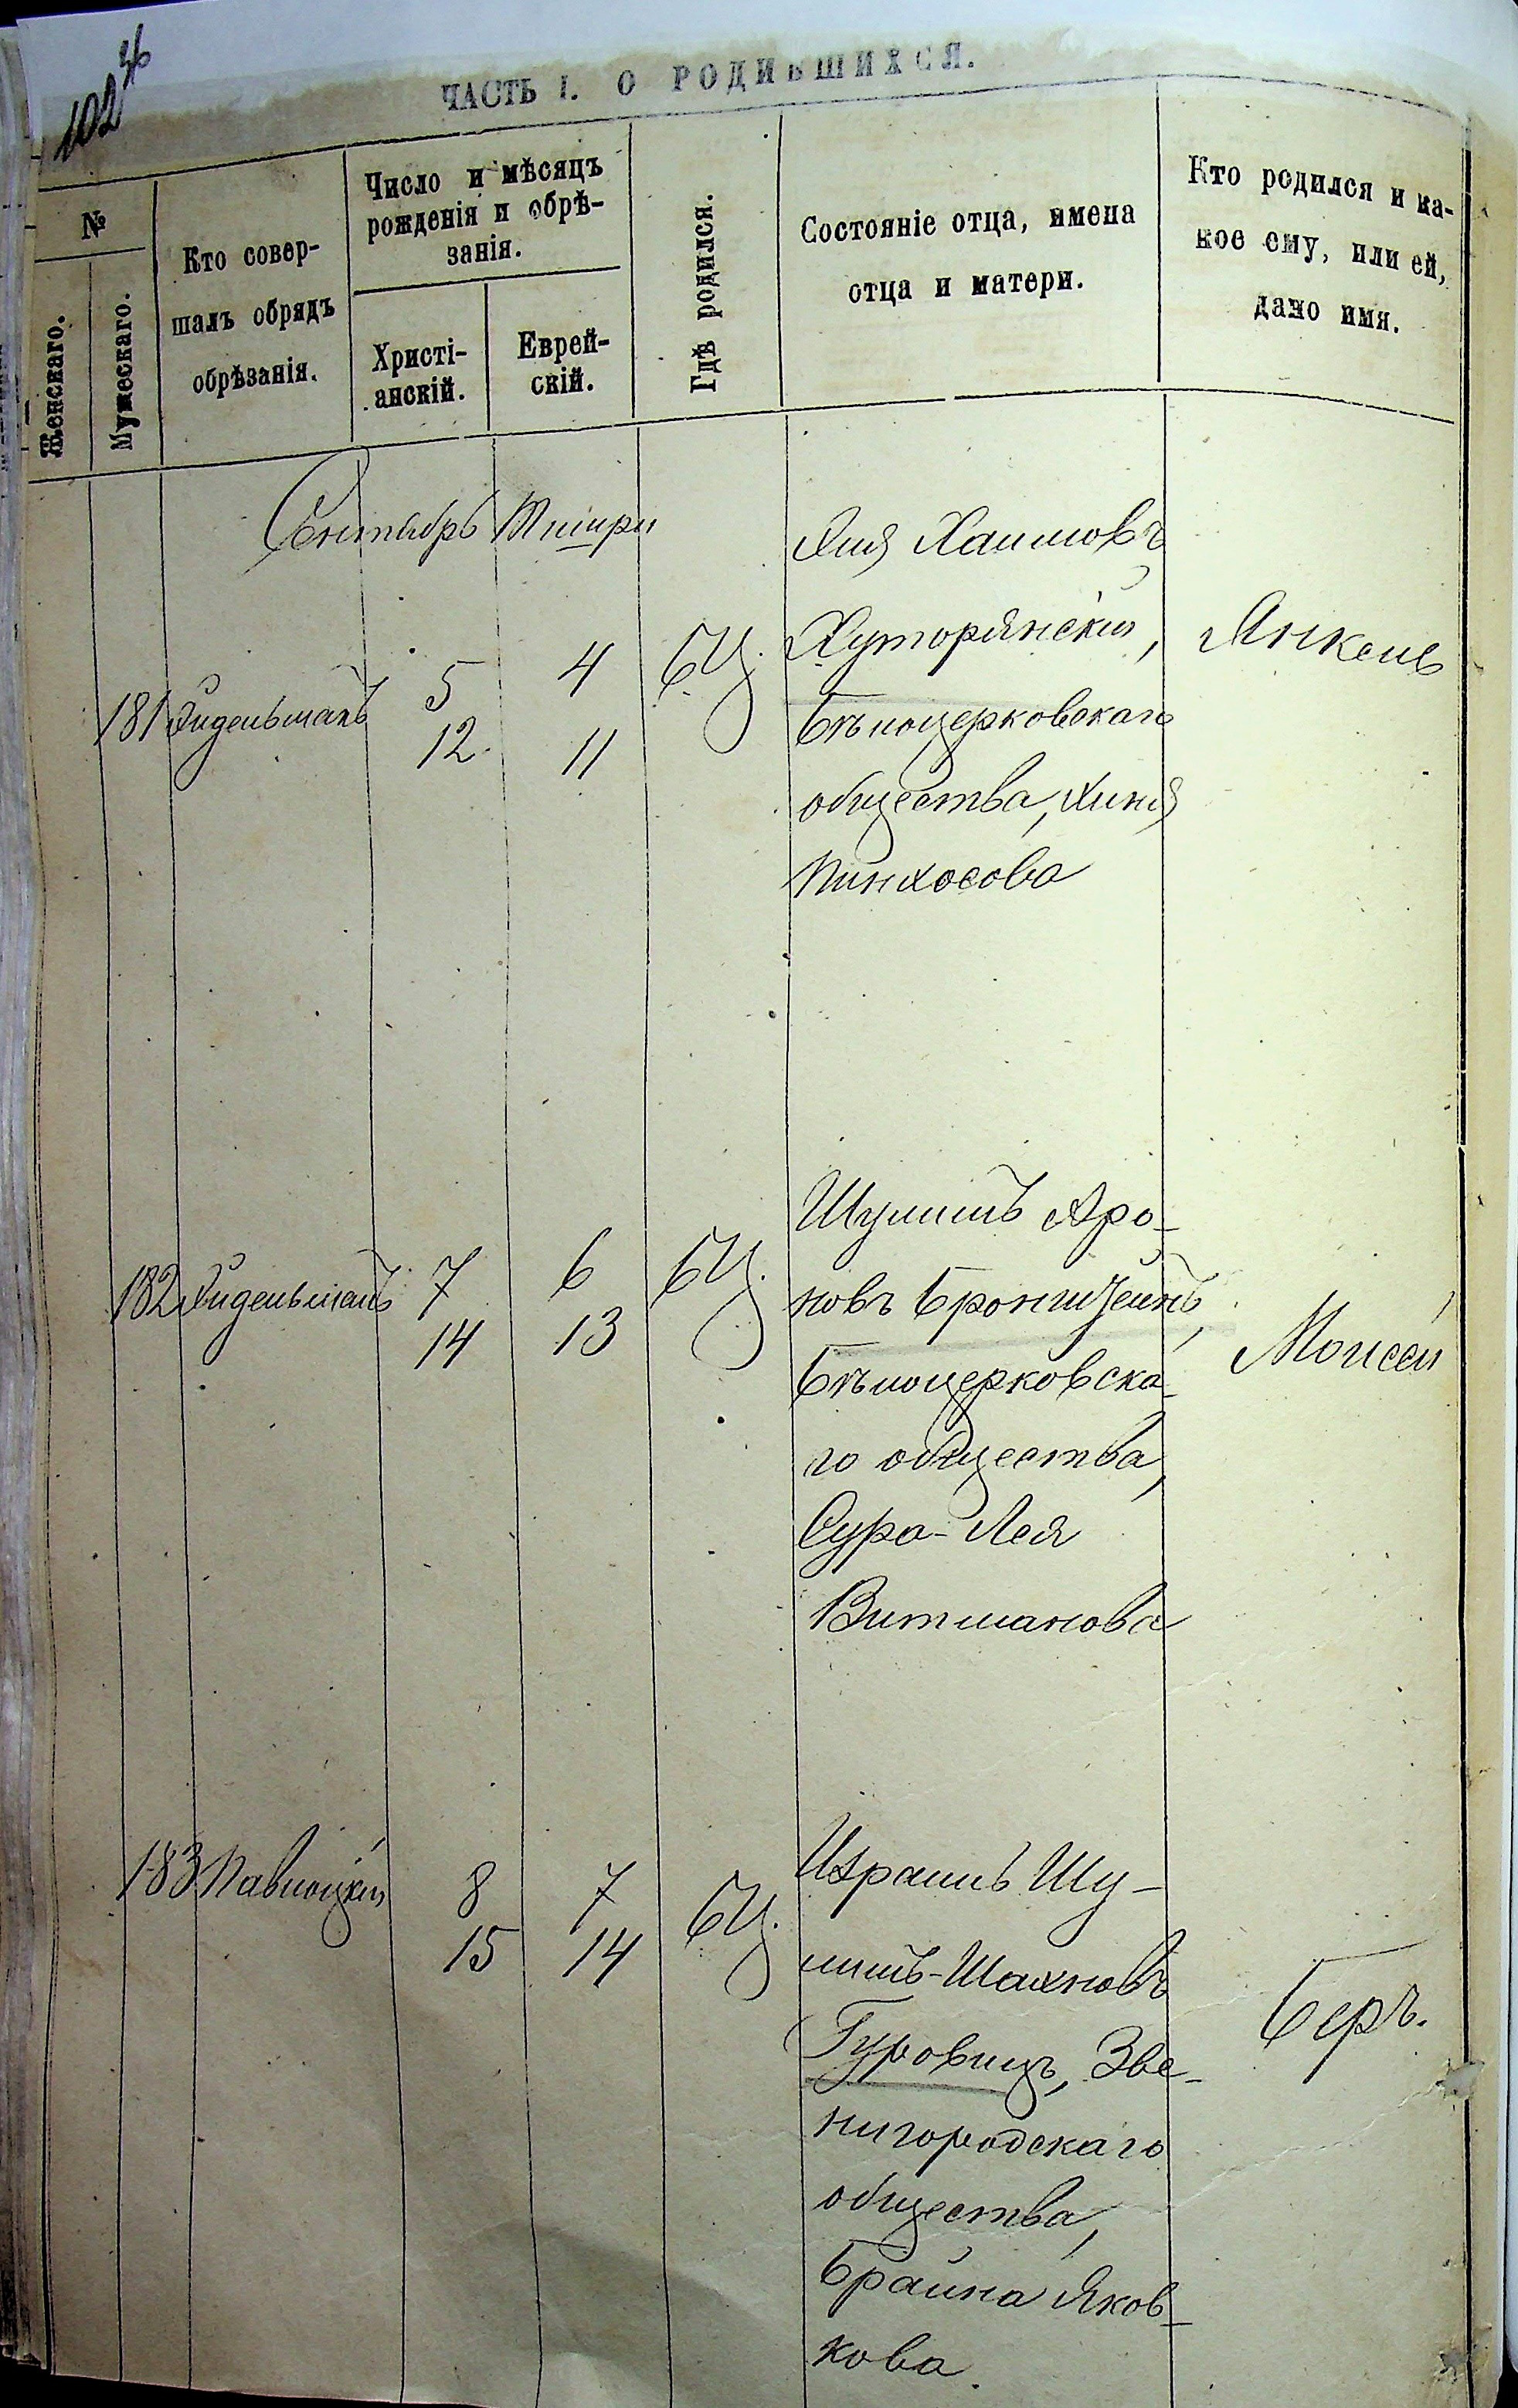 102
36
ЧАСТЬ I. О РОДИВШИХСЯ.
№
Женскаго.
Мужескаго.
Кто совер-
шалъ обрядъ
обрѣзанія.
Число и мѣсяцъ
рожденія и обрѣ-
занія.
Христі-
анскій.
Еврей-
скій.
Гдѣ родился.
Состояніе отца, имена
отца и матери.
Кто родился и ка-
кое ему, или ей,
дано имя.
Сентябрь Тишри
181
5
12
4
11
БЦ.
Хаимовъ
Хуторянскій,
Бѣлоцерковскаго
общества, Хиня
Пинхосова
Янкель
182
7
14
6
13
БЦ.
Шулимъ Аро-
новъ Бронштейнъ,
Бѣлоцерковска-
го общества,
Сура-Лея
Витманова
Моисей
183 Паволоцкій
8
15
7
14
БЦ.
Израиль Шу-
лимъ-Шахновъ
Гуровицъ, Зве-
нигородскаго
общества,
Брайна Яков-
кова
Беръ.